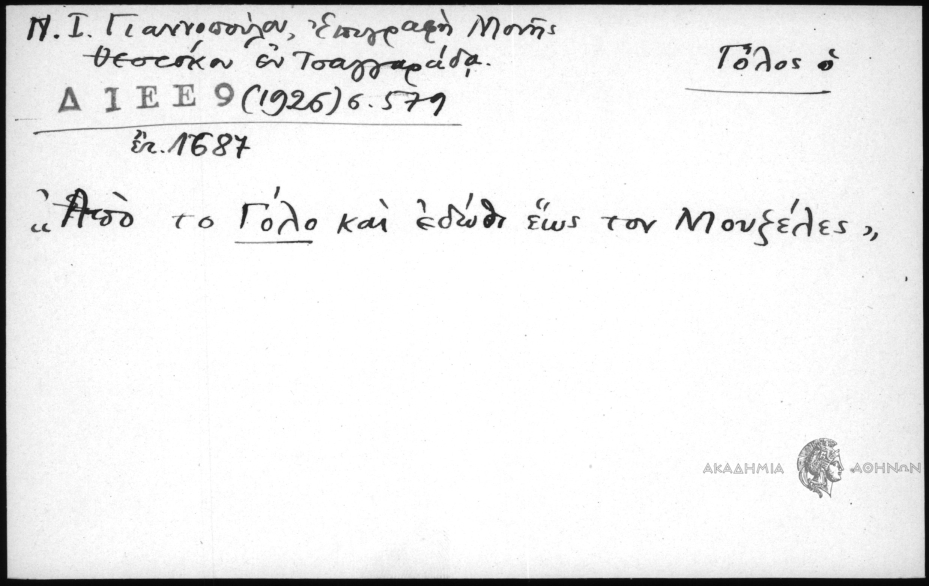 Ν. Ι. Γιαννοπούλου, Ἐπιγραφὴ Μονῆς
Θεοτόκου ἐν Τσαγγαράδᾳ.
Γόλος ὁ
ΔΙΕΕ 9 (1926) σ. 579
ἔτ. 1687
« Ἀπὸ το Γόλο καὶ ἐδώθι ἕως τον Μουξέλες »
ΑΚΑΔΗΜΙΑ ΑΘΗΝΩΝ